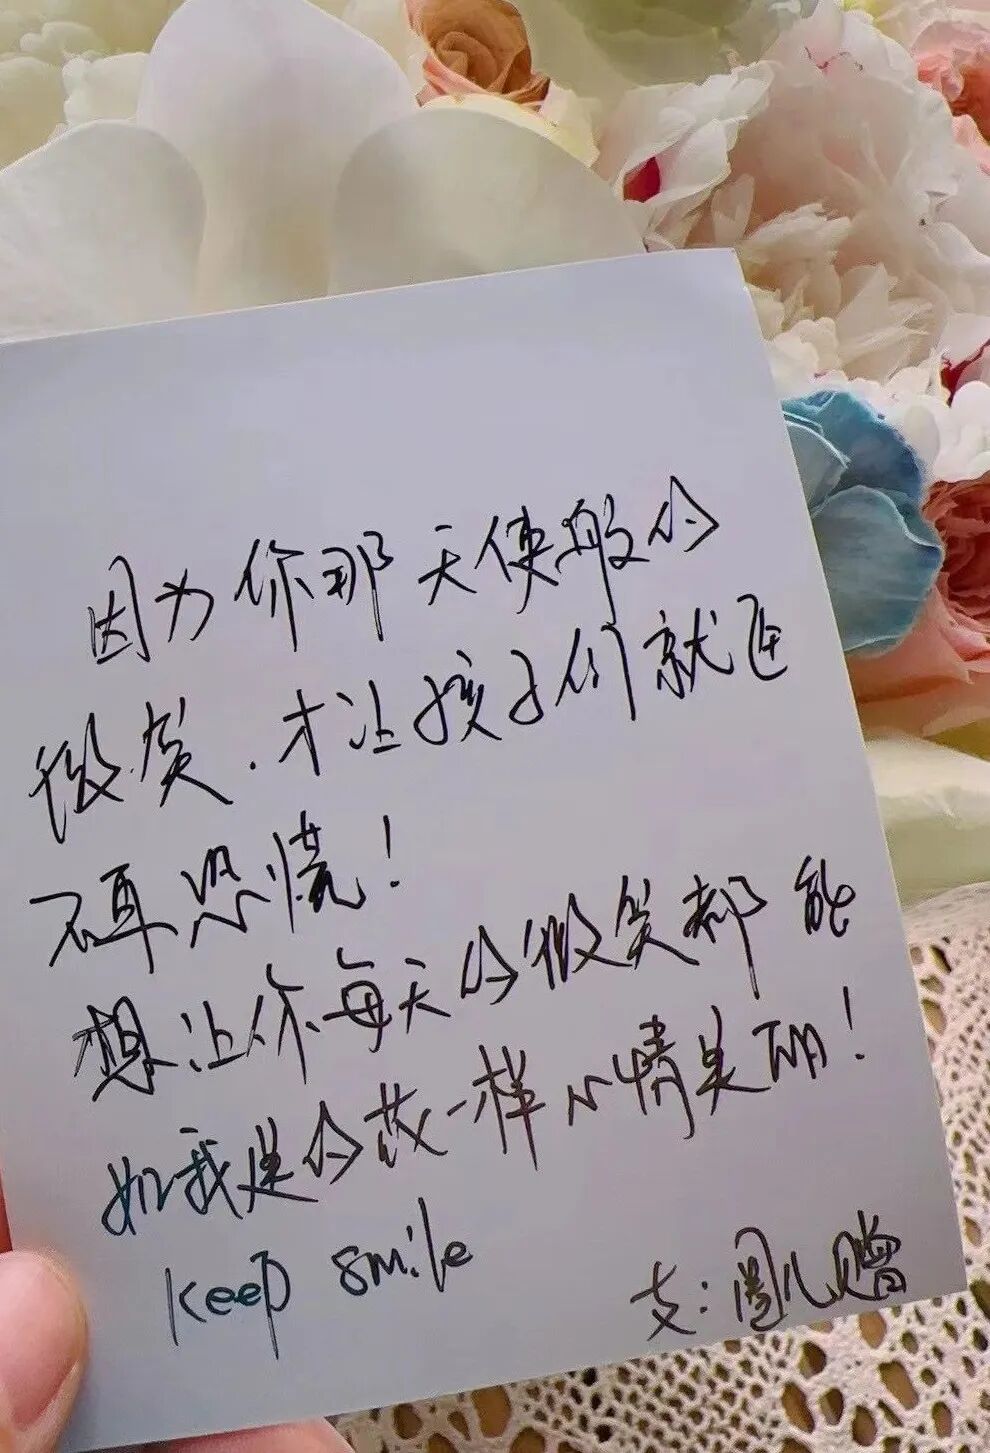 因为你那天使般的
微笑.才让孩子们就医
不再恐慌!
想让你每天的微笑都能
如我送的花一样心情美丽!
keep smile
友:圆儿赠